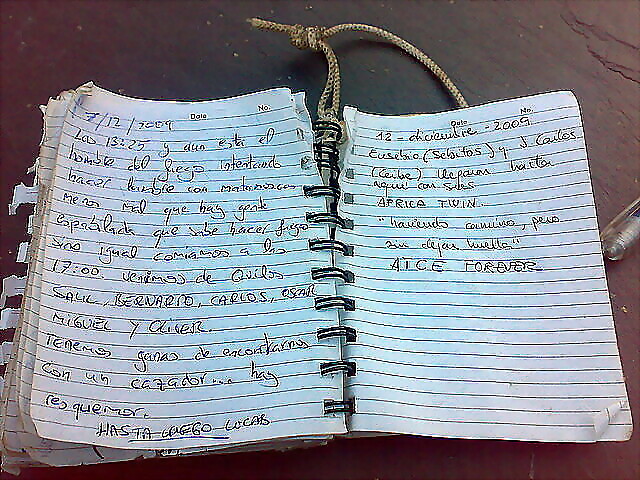 Date No.
7/12/2009
Las 13:25 y aun esta el
hombre del fuego intentando
hacer lumbre con matorrascas
menos mal que hay gente
espabilada que sabe hacer fuego
sino igual comiamos a las
17:00. venimos de Quilos
SAUL, BERNARDO, CARLOS, OSCAR
MIGUEL Y OLIVER.
TENEMOS ganas de encontrarnos
con un cazador... hay
resquemor.
HASTA LUEGO LUCAS
Date No.
12-diciembre-2009
Eusebio (Sebitos) y J. Carlos
(Caribe) llegaron hasta
aqui con sus
AFRICA TWIN.
"haciendo camino, pero
sin dejar huella"
AICE FOREVER